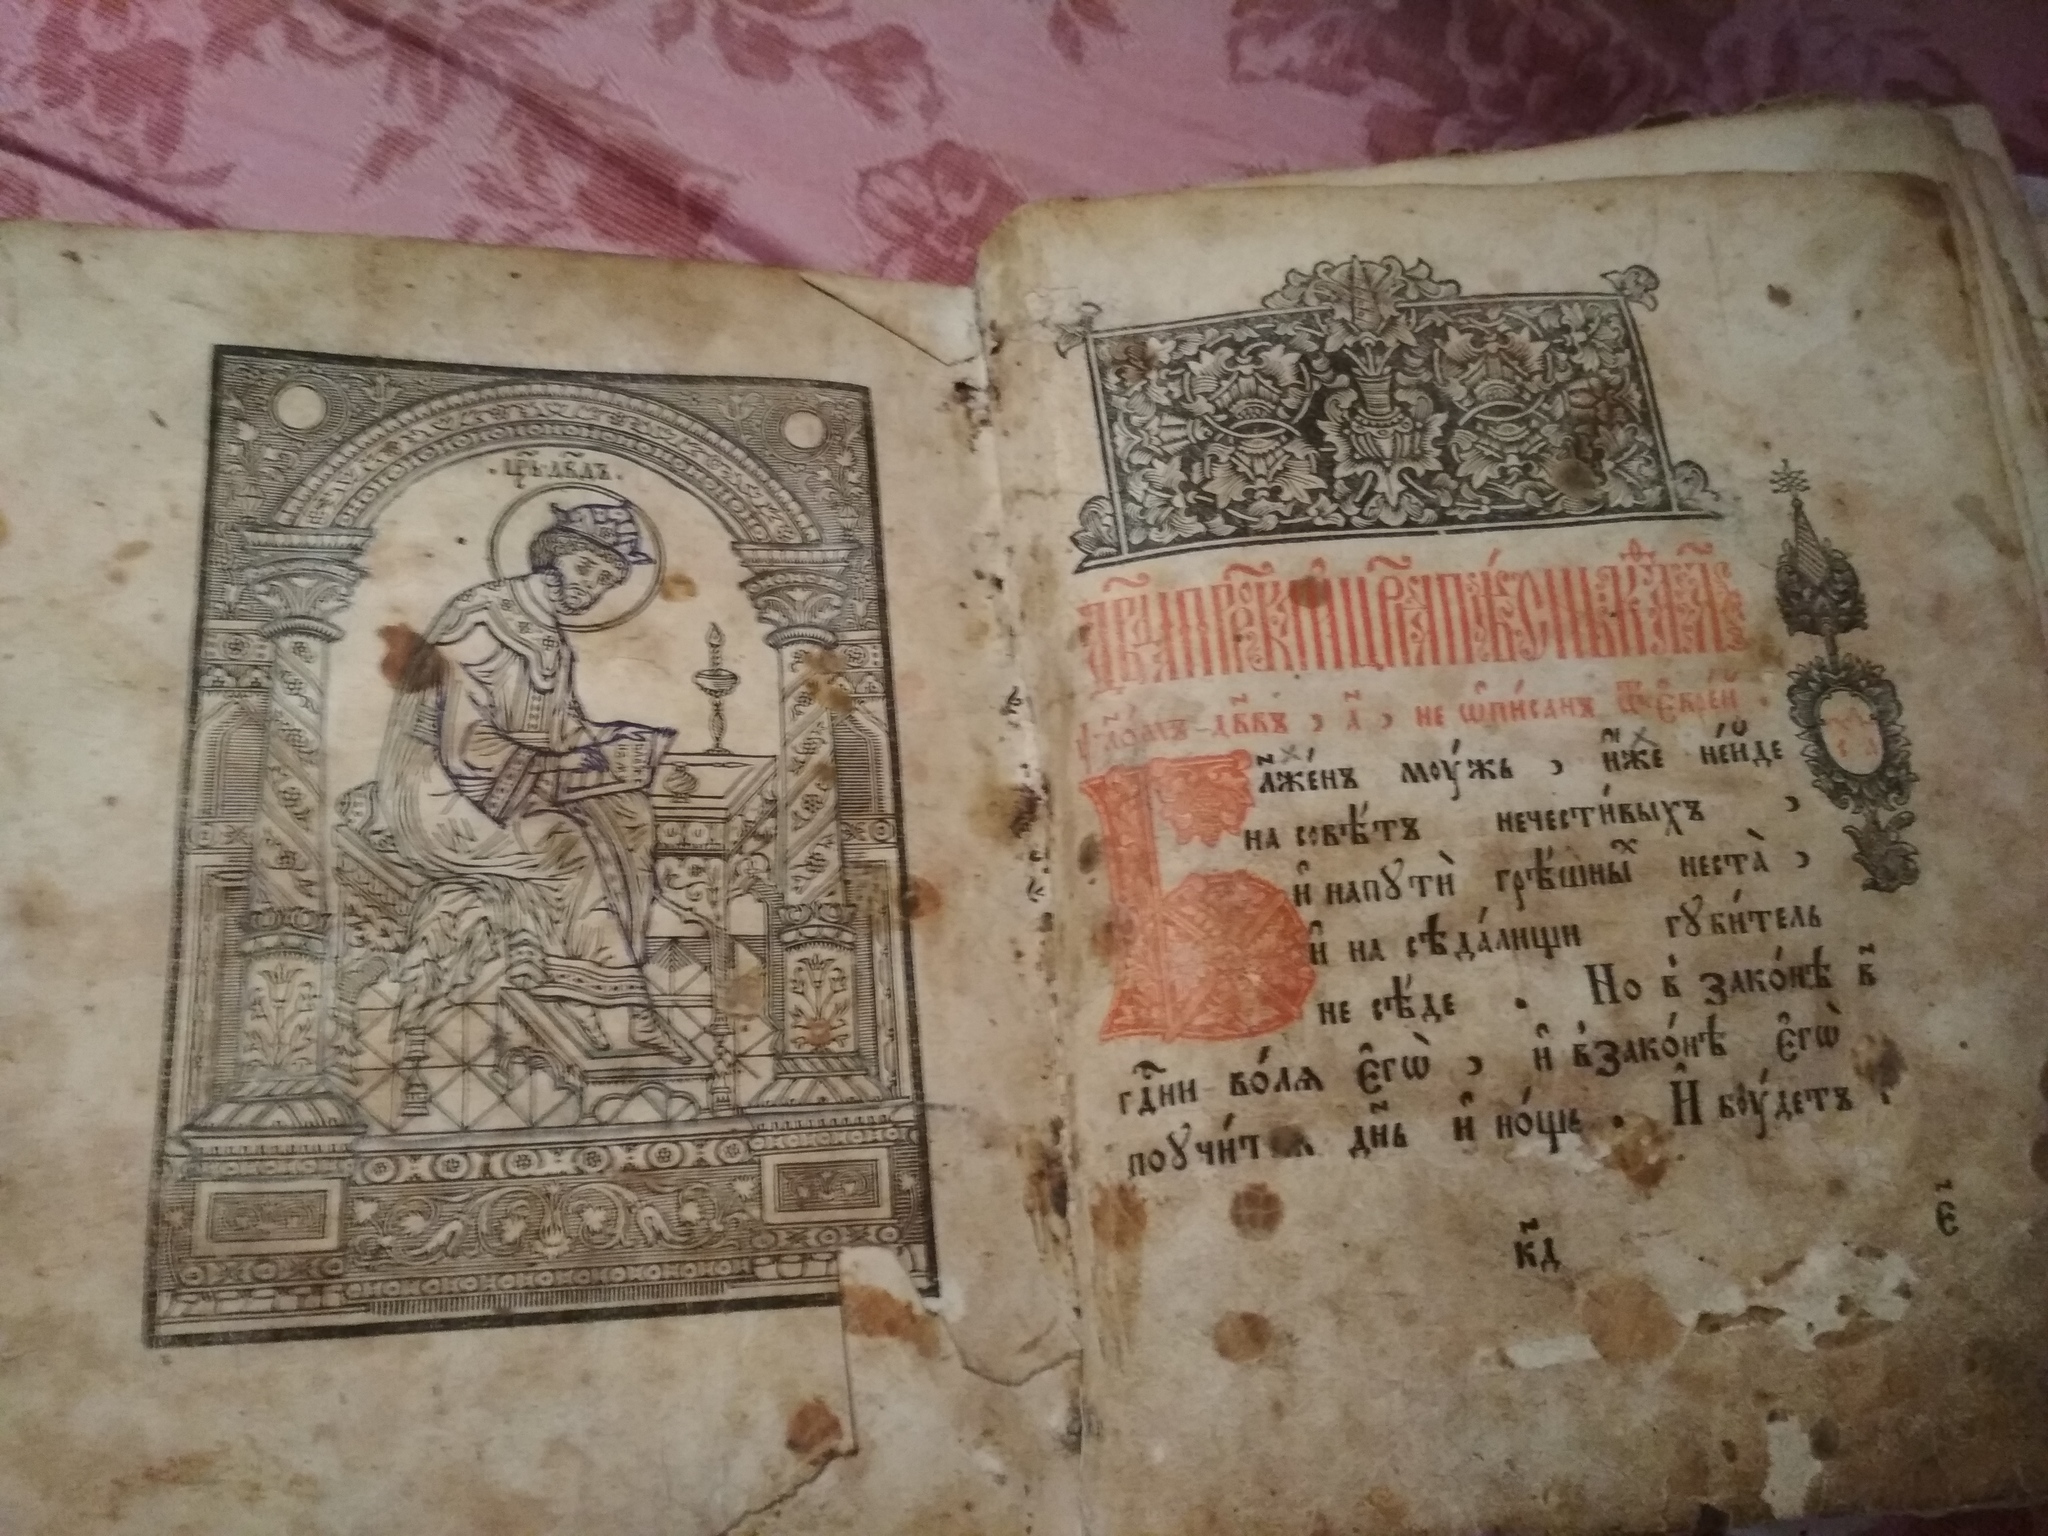 цр҃ь дв҃дъ
дв҃да прⷪ҇рка и҆ цр҃ѧ пѣ́снь
ѱало́мъ дв҃дъ , а҃ , не ѡ҆пи́санъ ѿ є҆врє́й .
Бл҃же́нъ моу́жь , и҆́же не и́де
на совѣ́тъ нечести́выхъ ,
и҆ на пꙋтѝ грѣ́шныⷯ не ста̀ ,
и҆ на сѣда́лищи гꙋби́тель
не сѣ́де . Но в зако́нѣ
гдⷭ҇ни во́лѧ є҆гѡ̀ , и҆ в зако́нѣ є҆гѡ̀
поꙋчи́тсѧ дн҃ь и҆ но́щь . И҆ боу́детъ
к҃д
є҃